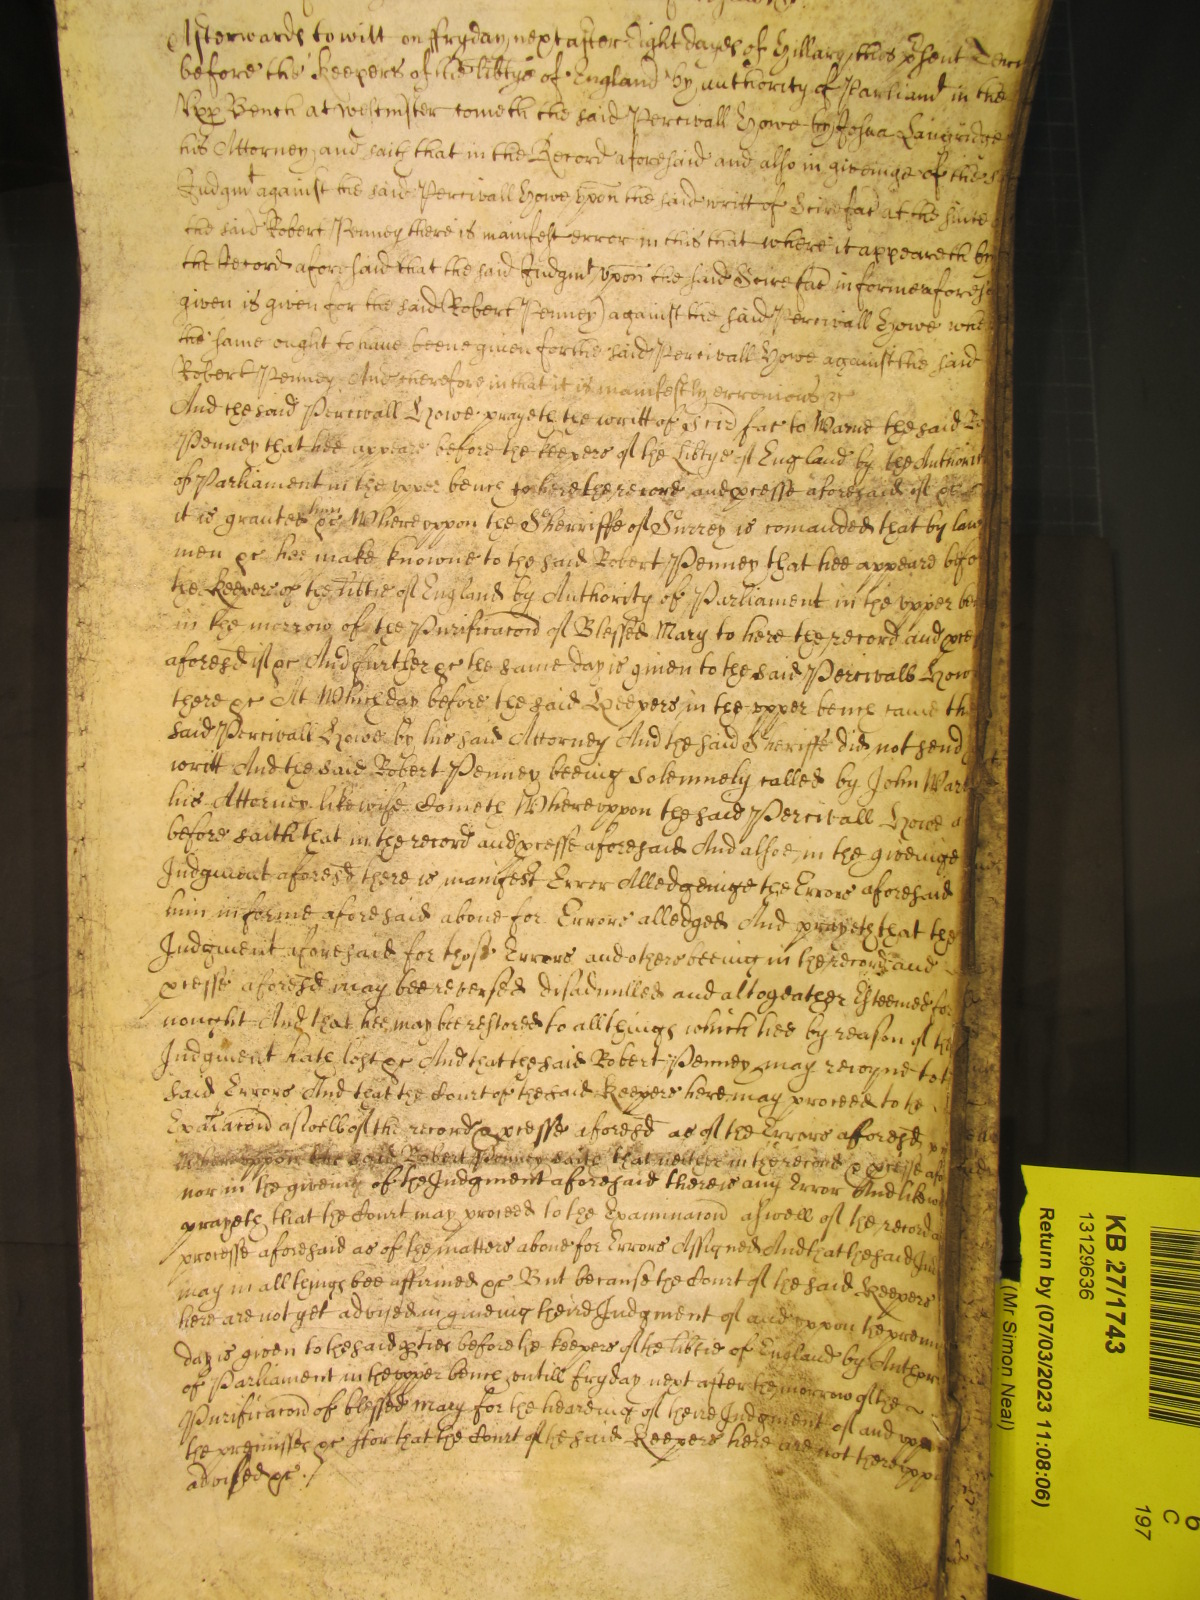 Afterwards to witt on ffryday next after Eight dayes of Hillary this p'sent
before the Keepers of the libtye of England by authority of Parliamt in the
Upp Bench at Westmster cometh the said Percivall Howe by Joshua Langridge
his Attorney and saith that in the Record aforesaid and also in giveinge of the
Judgmt against the said Percivall Howe upon the said writt of Scire fac at the suite
the said Robert Penney there is manifest error in this that where it appeareth by
the Record aforesaid that the said Judgmt upon the said Scire fac in forme afores
given is given for the said Robert Penney against the said Percivall Howe whe
the same ought to have beene given for the said Percivall Howe against the said
Robert Penney And therefore in that it is manifestly erronious &c
And the said Percivall Howe prayeth the writt of Scire fac to Warne the said Ro
Penney that hee appeare before the keepers of the Libtye of England by the Authorit
of Parliament in the upper bench to here the record and pcesse aforesaid if &c
it is granted him &c Whereuppon the Sherriffe of Surrey is comanded that by law
men &c hee make knowne to the said Robert Penney that hee appeare befo
the Keepers of the libtie of England by Authority of Parliament in the upper be
in the morrow of the Purificacon of Blessed Mary to here the record and pce
aforesd if &c And further &c the same day is given to the said Percivall How
there &c At Which day before the said Keepers in the upper bench came th
said Percivall Howe by his said Attorney And the said Sheriffe did not send
writt And the said Robert Penney beeing solemnely called by John War
his Attorney likewise Cometh Whereuppon the said Percivall Howe a
before saith that in the record and pcesse aforesaid And alsoe in the giveinge
Judgment aforesd there is manifest Error Alledgeinge the Errors aforesaid
him in forme aforesaid above for Errors alledged And prayeth that the
Judgment aforesaid for those Errors and others beeing in the record and
pcesse aforesd may bee reversed disadnulled and altogeather Esteemed for
nought And that hee may bee restored to all things which hee by reason of the
Judgment hath lost &c And that the said Robert Penney may rejoyne to t
said Errors And that the Court of the said Keepers here may proceed to the
Exaīacon as well of the record & pcesse aforesd as of the Errors aforesd
Whereuppon the said Robert Penney saith that neither in the record & pcesse afo
nor in the giveing of the Judgment aforesaid there is any Error And likew
prayeth that the Court may proceed to the Examinacon aswell of the record a
processe aforesaid as of the matters above for Errors Assigned And that the said Jud
may in all things bee affirmed &c But because the Court of the said Keepers
here are not yet advised in giveing theire Judgment of and uppon the prem
day is given to the said pties before the keepers of the libtie of England by Author
of Parliament in the upper bench untill fryday next after the morrow of the
Purificacon of blessed Mary for the heareing of theire Judgment of and upon
the premisses &c ffor that the Court of the said Keepers here are not thereupp
advised &c.
KB 27/1743
13129636
Return by (07/03/2023 11:08:06)
(Mr Simon Neal)
6
C
197